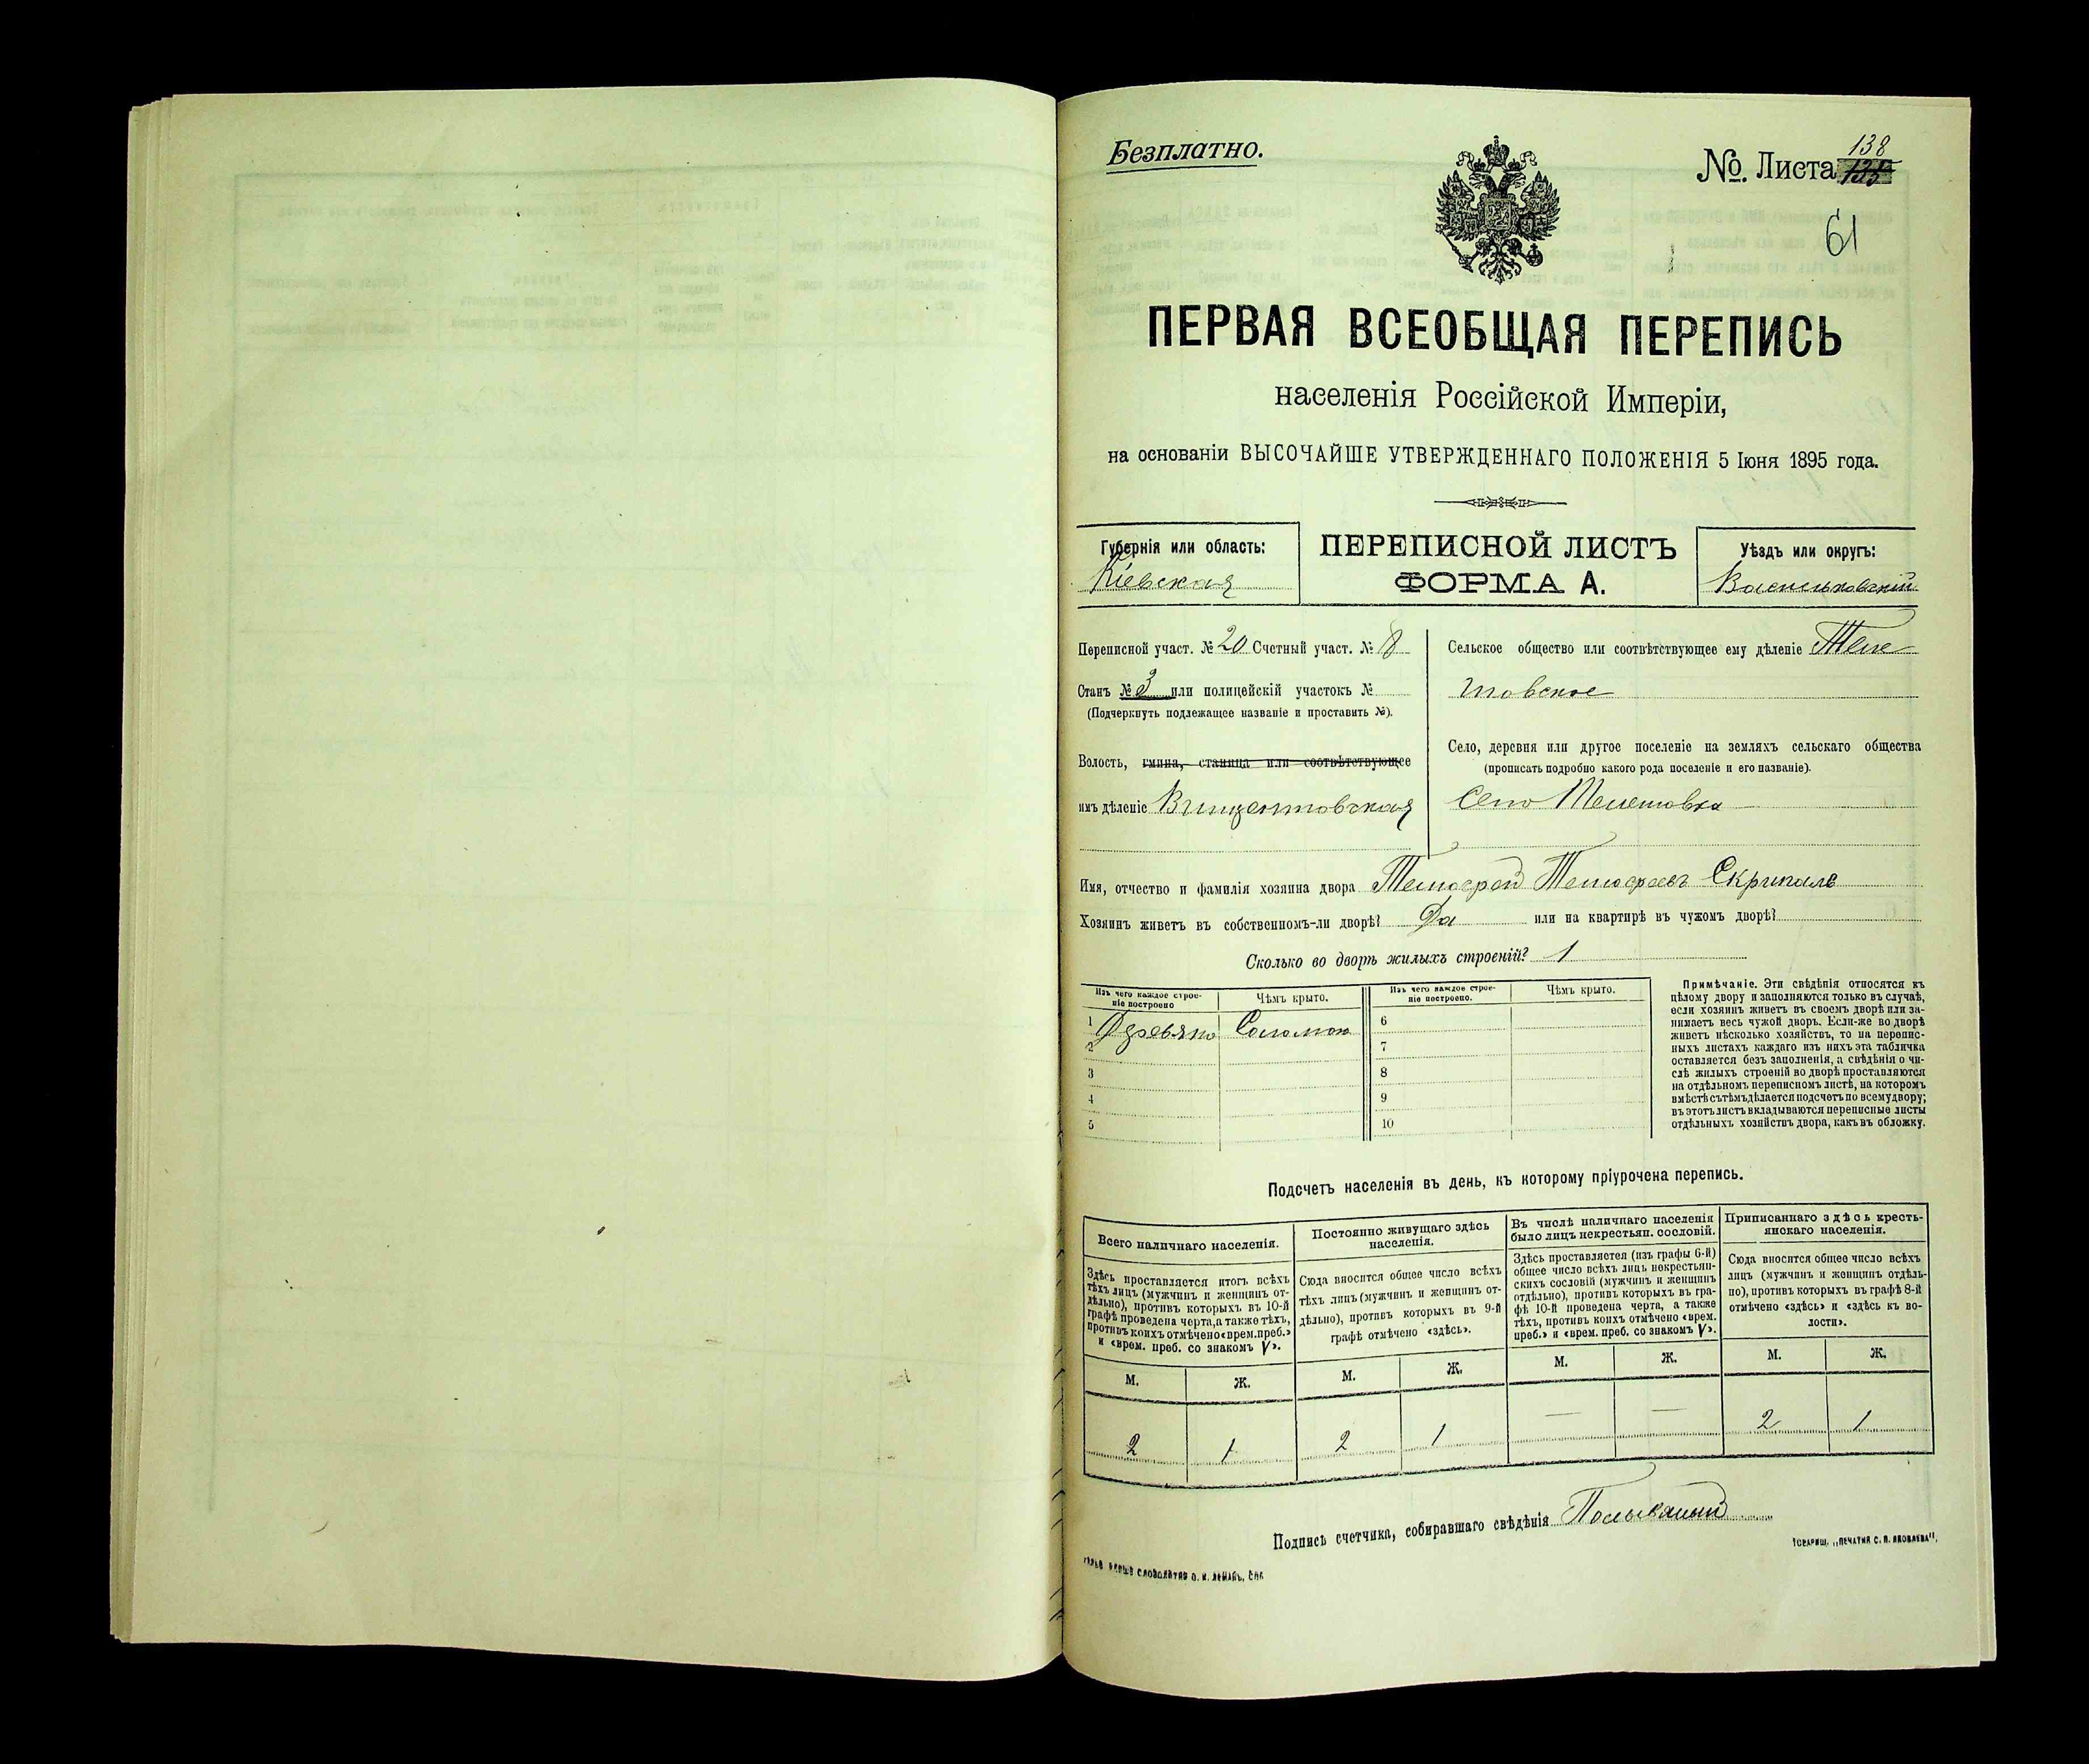 Безплатно.
№ Листа 138
135
61
ПЕРВАЯ ВСЕОБЩАЯ ПЕРЕПИСЬ
населенія Россійской Имперіи,
на основаніи ВЫСОЧАЙШЕ УТВЕРЖДЕННАГО ПОЛОЖЕНІЯ 5 Іюня 1895 года.
Губернія или область:
Кіевская
ПЕРЕПИСНОЙ ЛИСТЪ
ФОРМА А.
Уѣздъ или округъ:
Васильковскій
Переписной участ. № 20 Счетный участ. № 8
Станъ № 3 или полицейскій участокъ №
(Подчеркнуть подлежащее названіе и проставить №).
Волость, гмина, станица или соотвѣтствующее
имъ дѣленіе Винцентовская
Сельское общество или соотвѣтствующее ему дѣленіе Теле
шовское
Село, деревня или другое поселеніе на земляхъ сельскаго общества
(прописать подробно какого рода поселеніе и его названіе).
Село Телешовка
Имя, отчество и фамилія хозяина двора Тимофей Тимофеевъ Скрипаль
Хозяинъ живетъ въ собственномъ-ли дворѣ? Да или на квартирѣ въ чужомъ дворѣ?
Сколько во дворѣ жилыхъ строеній? 1
Изъ чего каждое строе-
ніе построено
Чѣмъ крыто.
Изъ чего каждое строе-
ніе построено.
Чѣмъ крыто.
1 Деревяно Соломою
2
3
4
5
6
7
8
9
10
Примѣчаніе. Эти свѣдѣнія относятся къ
цѣлому двору и заполняются только въ случаѣ,
если хозяинъ живетъ въ своемъ дворѣ или за-
нимаетъ весь чужой дворъ. Если-же во дворѣ
живетъ нѣсколько хозяйствъ, то на перепис-
ныхъ листахъ каждаго изъ нихъ эта табличка
оставляется безъ заполненія, а свѣдѣнія о чи-
слѣ жилыхъ строеній во дворѣ проставляются
на отдѣльномъ переписномъ листѣ, на которомъ
вмѣстѣ съ тѣмъ дѣлается подсчетъ по всему двору;
въ этотъ листъ вкладываются переписные листы
отдѣльныхъ хозяйствъ двора, какъ въ обложку.
Подсчетъ населенія въ день, къ которому пріурочена перепись.
Всего наличнаго населенія.
Здѣсь проставляется итогъ всѣхъ
тѣхъ лицъ (мужчинъ и женщинъ от-
дѣльно), противъ которыхъ въ 10-й
графѣ проведена черта, а также тѣхъ,
противъ коихъ отмѣчено «врем. преб.»
и «врем. преб. со знакомъ V».
Постоянно живущаго здѣсь
населенія.
Сюда вносится общее число всѣхъ
тѣхъ лицъ (мужчинъ и женщинъ от-
дѣльно), противъ которыхъ въ 9-й
графѣ отмѣчено «здѣсь».
Въ числѣ наличнаго населенія
было лицъ некрестьян. сословій.
Здѣсь проставляется (изъ графы 6-й)
общее число всѣхъ лицъ некрестьян-
скихъ сословій (мужчинъ и женщинъ
отдѣльно), противъ которыхъ въ гра-
фѣ 10-й проведена черта, а также
тѣхъ, противъ коихъ отмѣчено «врем.
преб.» и «врем. преб. со знакомъ V».
Приписаннаго здѣсь кресть-
янскаго населенія.
Сюда вносится общее число всѣхъ
лицъ (мужчинъ и женщинъ отдѣль-
но), противъ которыхъ въ графѣ 8-й
отмѣчено «здѣсь» и «здѣсь къ во-
лости».
М. Ж. М. Ж. М. Ж. М. Ж.
2 1 2 1 — — 2 1
Подпись счетчика, собиравшаго свѣдѣнія
Товарищ. „Печатня С. П. Яковлева“,
Словолитня О. И. Леманъ, Спб